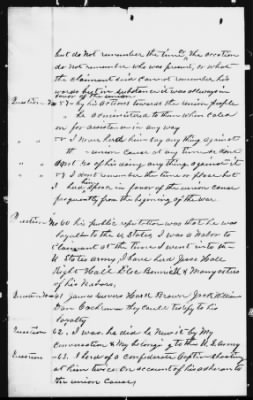 but do not remember the time, the occation
do not remember who was present, or what
the claimant did cannot remember his
words but in substance it was allways in
favor of the union.
Question No 57 by his actions towards the union people
" " he administered to them when called
on for assistance in any way
" " I never herd him say any thing against
the union cause at any time, or done
" " dont know of his doing any thing against it
" " I dont remember the time or place but
I had in favor of the union cause
frequently from the begining of the war
Question No 60 his public reputation was that he was
loyal to the U States, I was a Nabor to
Claimant at the time I went in to the
U States army, I have herd Jess Hall
Right Hall Bennett & Many others
of his Nabors,
Question 61 James Hall Brown Jack Williams
Dan Cochran they could testify to his
loyalty
Question 62, I was he did he knew it by My
Conversation & My belonging to the U.S. army
Question 63. I herd of a confederate Capt shooting
at him twice on account of his adherance to
the union cause,